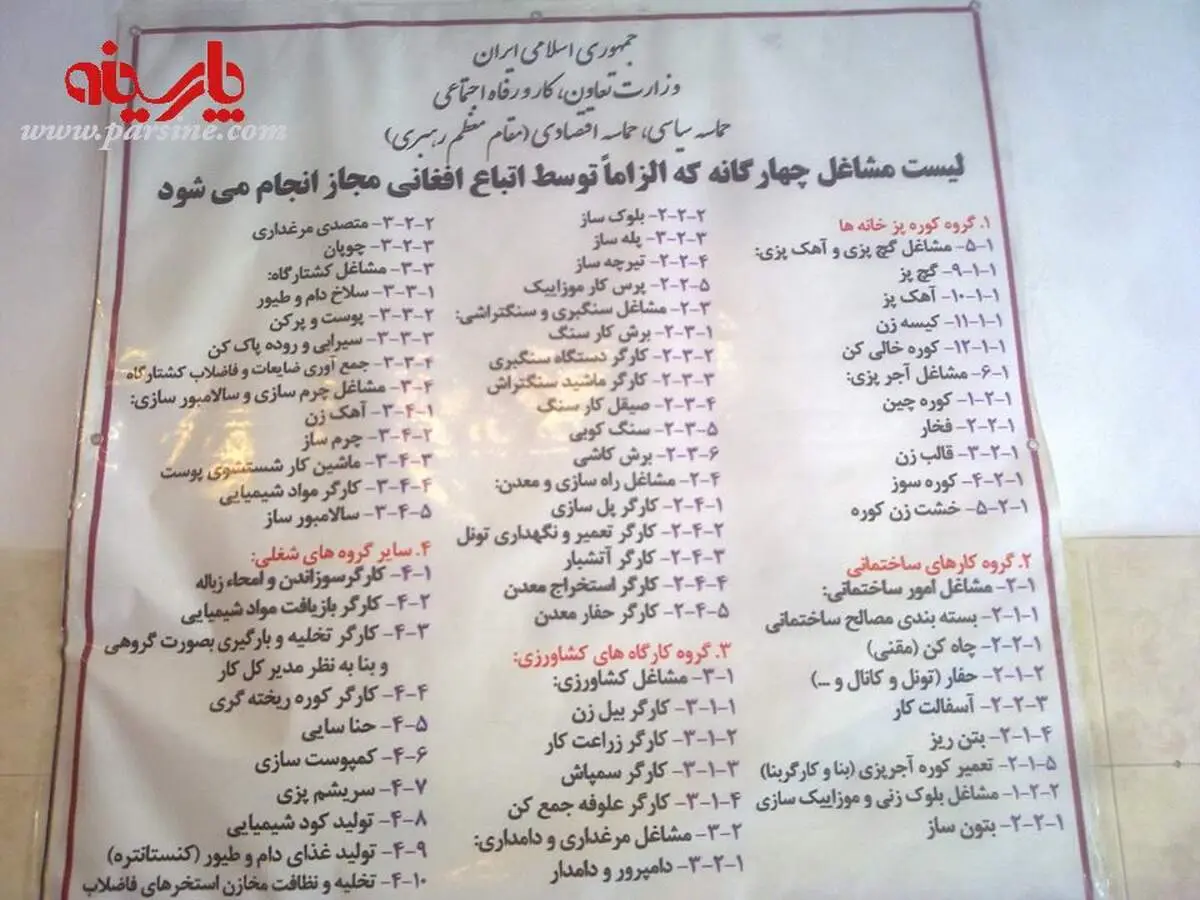 پارسینه
www.parsine.com
جمهوری اسلامی ایران
وزارت تعاون، کار و رفاه اجتماعی
حماسه سیاسی، حماسه اقتصادی (مقام معظم رهبری)
لیست مشاغل چهارگانه که الزاماً توسط اتباع افغانی مجاز انجام می شود
۱. گروه کوره پز خانه ها
۵-۱- مشاغل گچ پزی و آهک پزی:
۹-۱-۱- گچ پز
۱۰-۱-۱- آهک پز
۱۱-۱-۱- کیسه زن
۱۲-۱-۱- کوره خالی کن
۶-۱- مشاغل آجر پزی:
۱-۲-۱- کوره چین
۲-۲-۱- فخار
۳-۲-۱- قالب زن
۴-۲-۱- کوره سوز
۵-۲-۱- خشت زن کوره
۲. گروه کارهای ساختمانی
۲-۱- مشاغل امور ساختمانی:
۲-۱-۱- بسته بندی مصالح ساختمانی
۲-۲-۱- چاه کن (مقنی)
۲-۱-۲- حفار (تونل و کانال و ...)
۲-۲-۳- آسفالت کار
۲-۱-۴- بتن ریز
۲-۱-۵- تعمیر کوره آجرپزی (بنا و کارگربنا)
۱-۲-۲- مشاغل بلوک زنی و موزاییک سازی
۲-۲-۱- بتون ساز
۲-۲-۲- بلوک ساز
۳-۲-۳- پله ساز
۲-۲-۴- تیرچه ساز
۲-۲-۵- پرس کار موزاییک
۲-۳- مشاغل سنگبری و سنگتراشی:
۲-۳-۱- برش کار سنگ
۲-۳-۲- کارگر دستگاه سنگبری
۲-۳-۳- کارگر ماشید سنگتراش
۲-۳-۴- صیقل کار سنگ
۲-۳-۵- سنگ کوبی
۲-۳-۶- برش کاشی
۲-۴- مشاغل راه سازی و معدن:
۲-۴-۱- کارگر پل سازی
۲-۴-۲- کارگر تعمیر و نگهداری تونل
۲-۴-۳- کارگر آتشبار
۲-۴-۴- کارگر استخراج معدن
۲-۴-۵- کارگر حفار معدن
۳. گروه کارگاه های کشاورزی:
۳-۱- مشاغل کشاورزی:
۳-۱-۱- کارگر بیل زن
۳-۱-۲- کارگر زراعت کار
۳-۱-۳- کارگر سمپاش
۳-۱-۴- کارگر علوفه جمع کن
۳-۲- مشاغل مرغداری و دامداری:
۳-۲-۱- دامپرور و دامدار
۳-۲-۲- متصدی مرغداری
۳-۲-۳- چوپان
۳-۳- مشاغل کشتارگاه:
۳-۳-۱- سلاخ دام و طیور
۳-۳-۲- پوست و پرکن
۳-۳-۳- سیرابی و روده پاک کن
۳-۳-۴- جمع آوری ضایعات و فاضلاب کشتارگاه
۳-۴- مشاغل چرم سازی و سالامبور سازی:
۳-۴-۱- آهک زن
۳-۴-۲- چرم ساز
۳-۴-۳- ماشین کار شستشوی پوست
۳-۴-۴- کارگر مواد شیمیایی
۳-۴-۵- سالامبور ساز
۴. سایر گروه های شغلی:
۴-۱- کارگرسوزاندن و امحاء زباله
۴-۲- کارگر بازیافت مواد شیمیایی
۴-۳- کارگر تخلیه و بارگیری بصورت گروهی
و بنا به نظر مدیر کل کار
۴-۴- کارگر کوره ریخته گری
۴-۵- حنا سایی
۴-۶- کمپوست سازی
۴-۷- سریشم پزی
۴-۸- تولید کود شیمیایی
۴-۹- تولید غذای دام و طیور (کنستانتره)
۴-۱۰- تخلیه و نظافت مخازن استخرهای فاضلاب